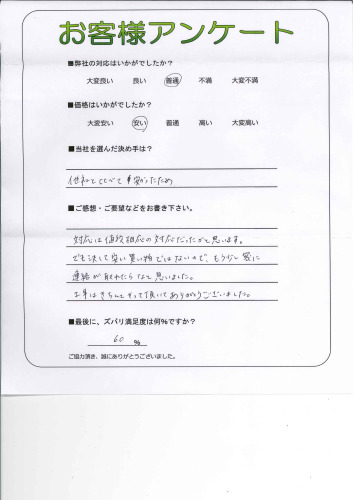 お客様アンケート
■弊社の対応はいかがでしたか?
大変良い 良い 普通 不満 大変不満
■価格はいかがでしたか?
大変安い 安い 普通 高い 大変高い
■当社を選んだ決め手は?
他社とくらべて 安かったため
■ご感想・ご要望などをお書き下さい。
対応は値段相応の対応だったかと思います。
でも決して安い買い物ではないので、もう少し密に
連絡が取れたらなと思いました。
工事はきちんとやって頂いてありがとうございました。
■最後に、ズバリ満足度は何%ですか?
60 %
ご協力頂き、誠にありがとうございました。